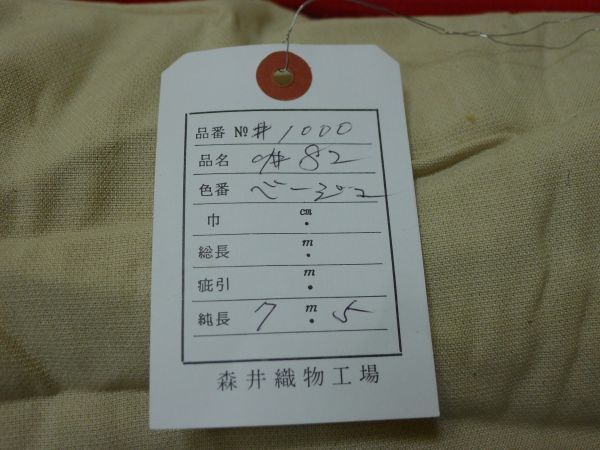 品番 № #1000
品名 #82
色番 ベージュ
巾 cm .
総長 m .
疵引 m .
純長 7 m . 5
森井織物工場